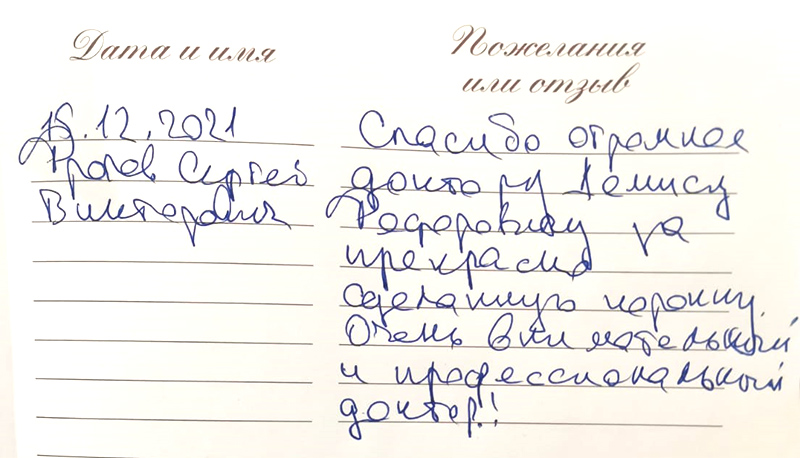 Дата и имя
Пожелания
или отзыв
18.12.2021
Сергей
Викторович
Спасибо огромное
доктору Денису
Федоровичу за
прекрасно
сделанную коронку.
Очень внимательный
и профессиональный
доктор!!